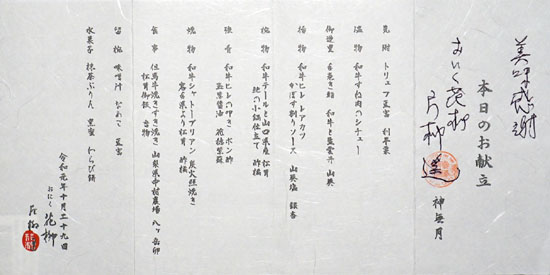 美味感謝
おにく花柳
片柳遥
本日のお献立
神無月
先附 トリュフ豆富 利平栗
温物 和牛すね肉のシチュー
御造里 毛蟹き飴 和牛と雲丹 山葵
揚物 和牛ヒレ レアカツ
かぼす割りソース 山葵塩 銀杏
椀物 和牛テールと山口県産 松茸
地の小鍋仕立て 酢橘
強肴 和牛ヒレの叩き ポン酢
生姜醤油 花穂紫蘇
焼物 和牛シャトーブリアン 炭火照焼き
岩手県より松茸 酢橘
食事 但馬牛焼きすき焼き 山梨県中村農場 八ヶ岳卵
松茸御飯 香物
留椀 味噌汁 なめこ 豆富
水菓子 抹茶ぷりん 黒蜜 わらび餅
令和元年十月二十九日
おにく 花柳